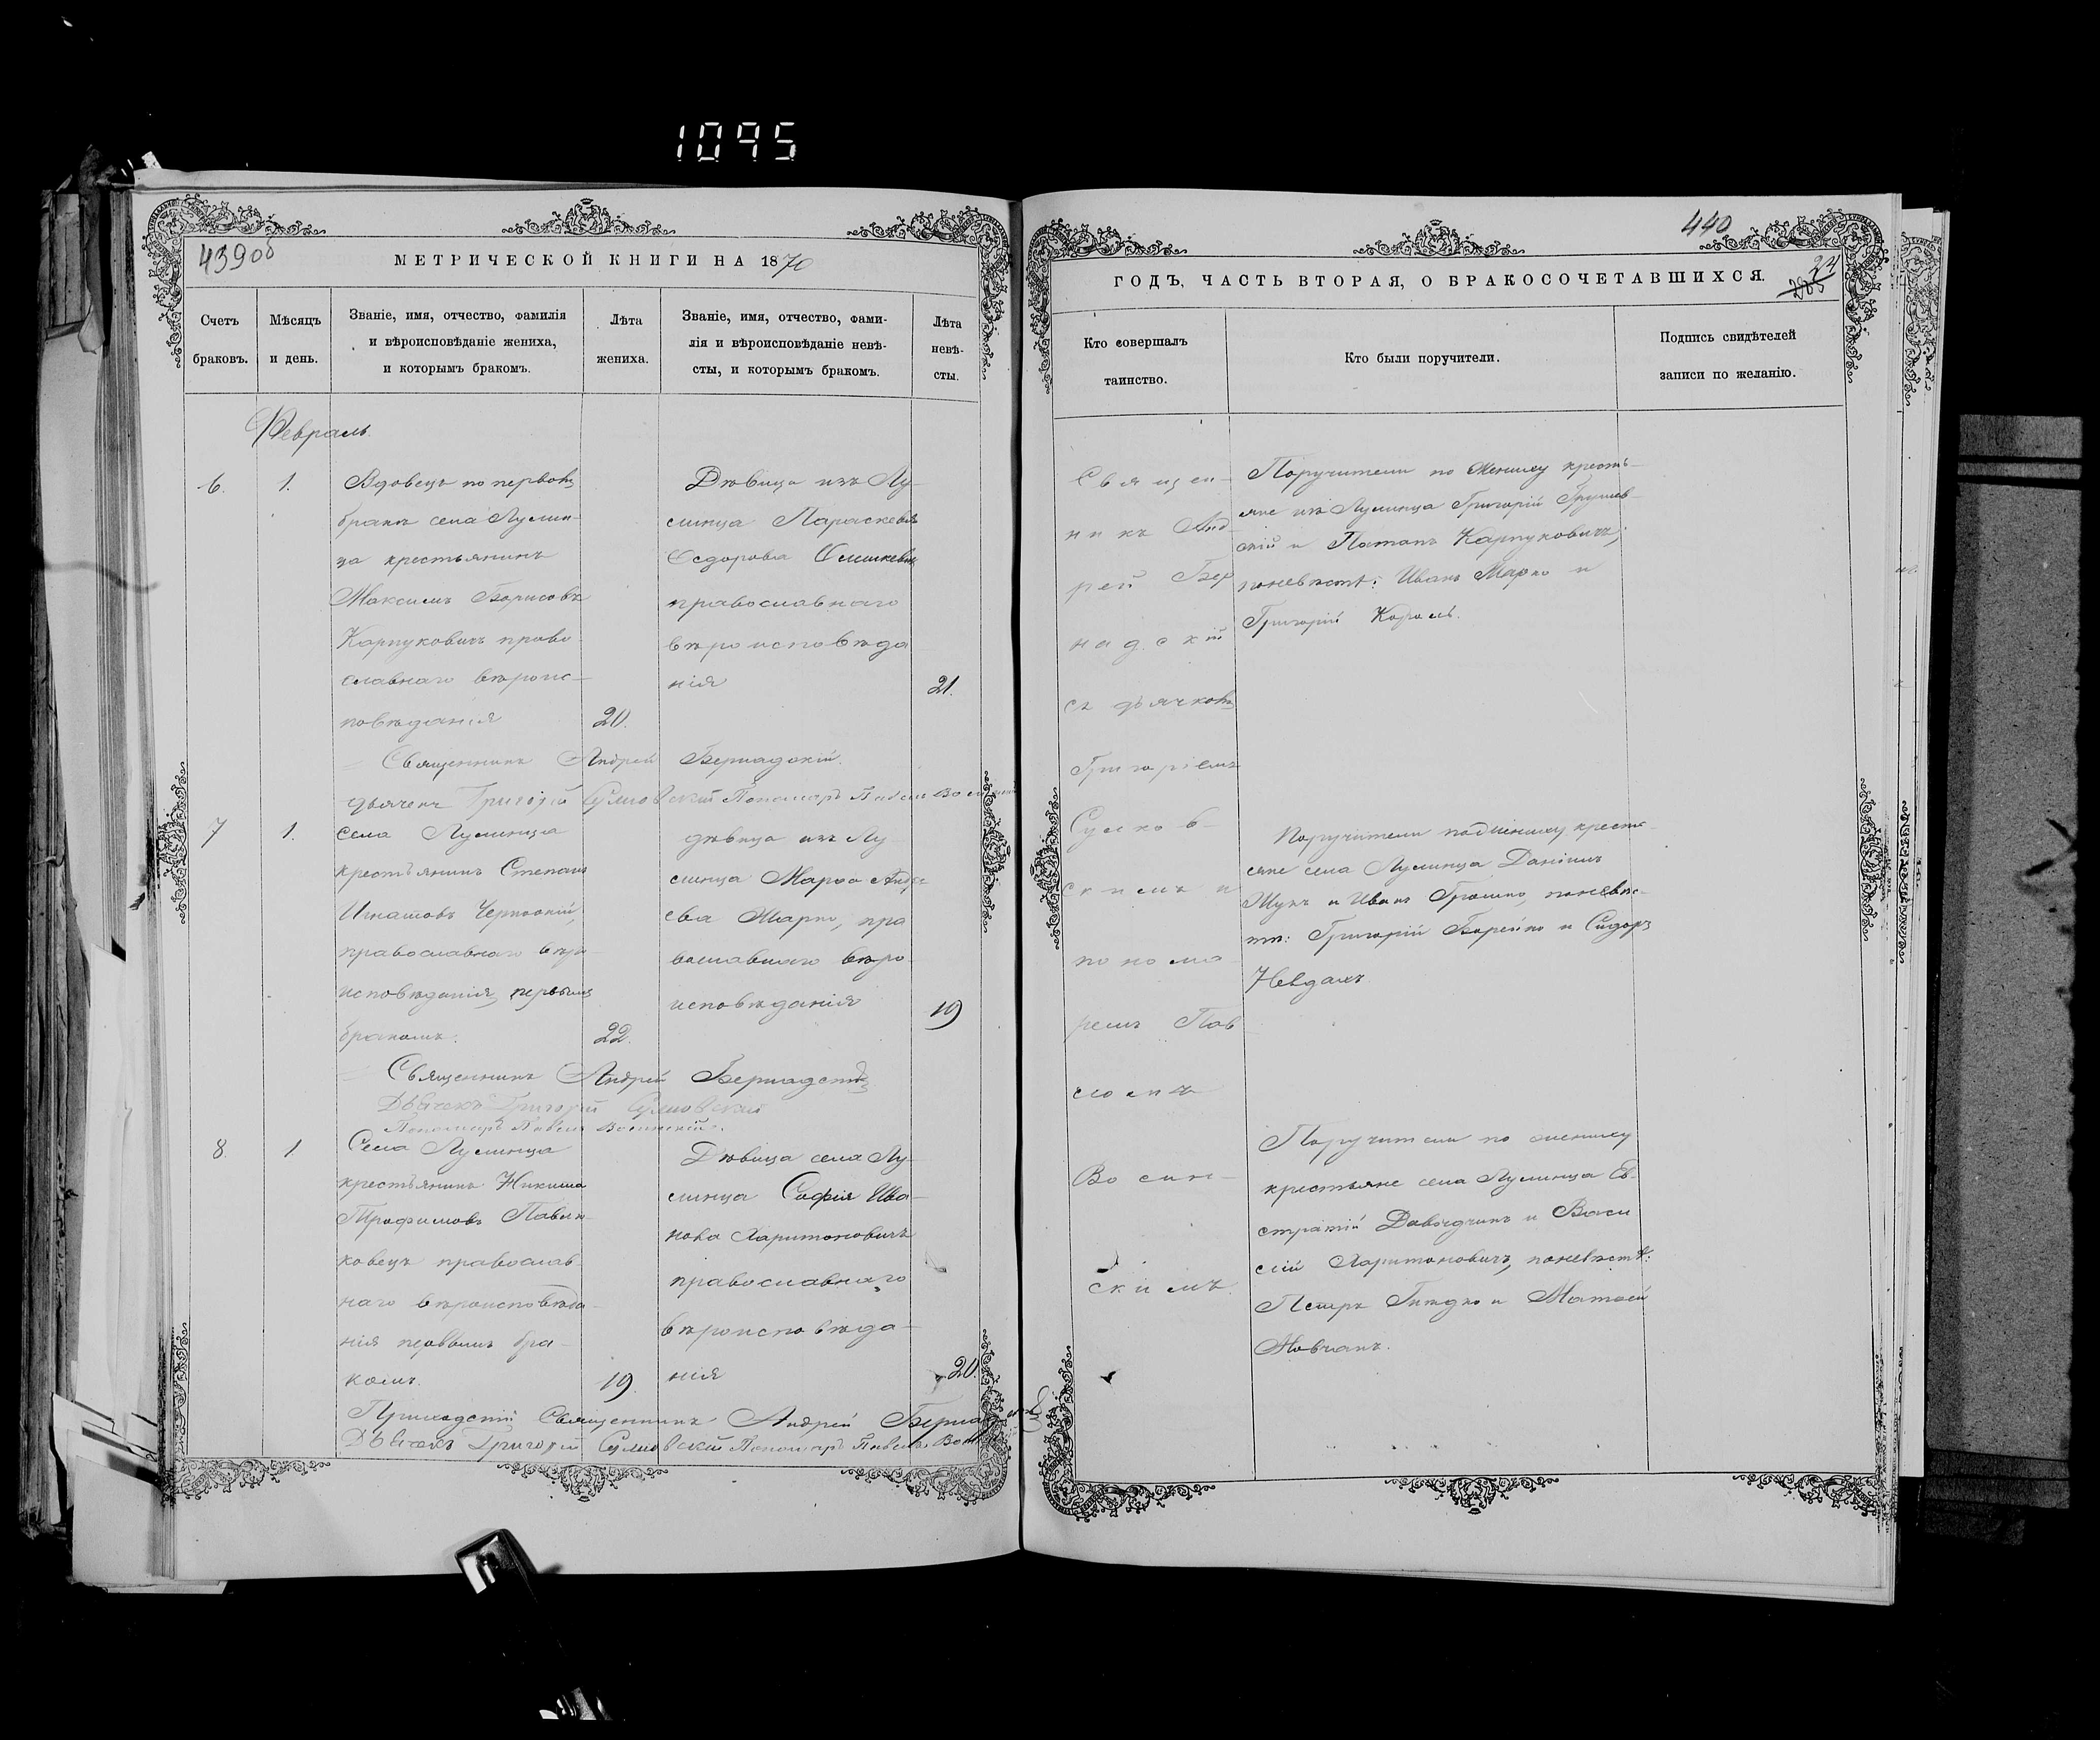 1095
439об
МЕТРИЧЕСКОЙ КНИГИ НА 1870
Счетъ браковъ.
Мѣсяцъ и день.
Званіе, имя, отчество, фамилія
и вѣроисповѣданіе жениха,
и которымъ бракомъ.
Лѣта жениха.
Званіе, имя, отчество, фами-
лія и вѣроисповѣданіе невѣ-
сты, и которымъ бракомъ.
Лѣта невѣ-
сты.
Февраль
6. 1.
Вдовецъ по первомъ
бракѣ села Лунин-
ца крестьянинъ
Максимъ Борисовъ
Карпуковичъ право
славнаго вѣроис-
повѣданія 20.
Дѣвица изъ Лу-
нинца Параскевія
Ѳедорова
православнаго
вѣроисповѣда
нія 21.
Священникъ Андрей Бернадскій.
дьячекъ Григорій Сулковскій Пономарь Павелъ
7 1.
села Лунинца
крестьянинъ Степанъ
Игнатовъ
православнаго вѣро
исповѣданія, первымъ
бракомъ. 22.
дѣвица изъ Лу
нинца Марѳа Андре
ева Марко, пра
вославнаго вѣро
исповѣданія 19
Священникъ Андрей Бернадскій
Дьячекъ Григорій Сулковскій
Пономарь Павелъ
8. 1
Села Лунинца
крестьянинъ Никита
Трофимовъ Павлю-
ковецъ православ-
наго вѣроисповѣда-
нія первымъ бра-
комъ. 19.
Дѣвица села Лу-
нинца Софія Ива-
нова Харитоновичъ
православнаго
вѣроисповѣда-
нія 20.
Приходскій Священникъ Андрей Бернадскій
Дьячекъ Григорій Сулковскій Пономарь Павелъ
440
24
ГОДЪ, ЧАСТЬ ВТОРАЯ, О БРАКОСОЧЕТАВШИХСЯ.
Кто совершалъ
таинство.
Кто были поручители.
Подпись свидѣтелей
записи по желанію.
Священ-
никъ Анд-
рей Бер
надскій
съ дьячкомъ
Григоріемъ
Сулков-
скимъ и
понома
ремъ Пав
ломъ
скимъ.
Поручители по жениху крестъ-
яне изъ Лунинца Григорій Грушев-
скій и Потапъ Карпуковичъ,
по невѣстѣ: Иванъ Марко и
Григорій Король.
Поручители по жениху кресть-
яне села Лунинца Даніилъ
Жукъ и Иванъ Громко, по невѣс-
тѣ: Григорій Борейко и Сидоръ
Невдахъ
Поручители по жениху
крестьяне села Лунинца Ев-
стратій Давыдчикъ и Васи
лій Харитоновичъ, по невѣстѣ:
Петръ и Матѳей